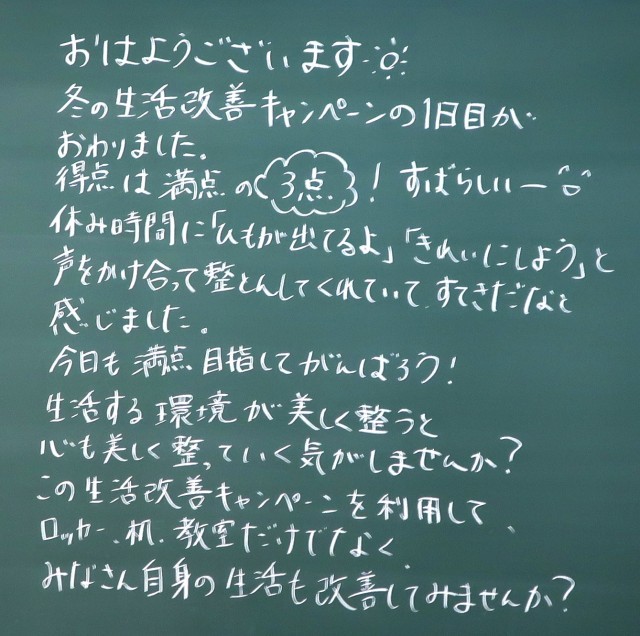 おはようございます
冬の生活改善キャンペーンの1日目が
おわりました。
得点は満点の3点！すばらしいー
休み時間に「ひもが出てるよ」「きれいにしよう」と
声をかけ合って整とんしてくれていて、すてきだなと
感じました。
今日も満点目指してがんばろう！
生活する環境が美しく整うと
心も美しく整っていく気がしませんか？
この生活改善キャンペーンを利用して
ロッカー、机、教室だけでなく、
みなさん自身の生活も改善してみませんか？